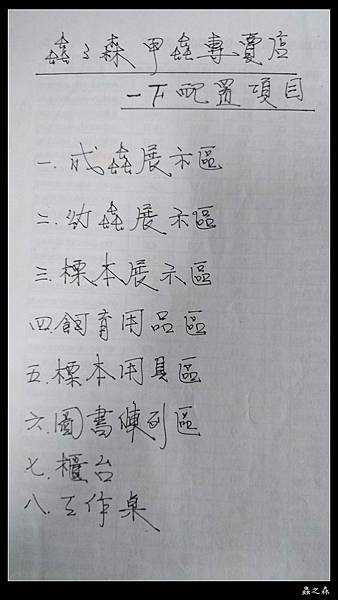 蟲之森甲蟲專賣店
一下配置項目
一.成蟲展示區
二.幼蟲展示區
三.標本展示區
四.飼育用品區
五.標本用具區
六.圖書陳列區
七.櫃台
八.工作桌
蟲之森